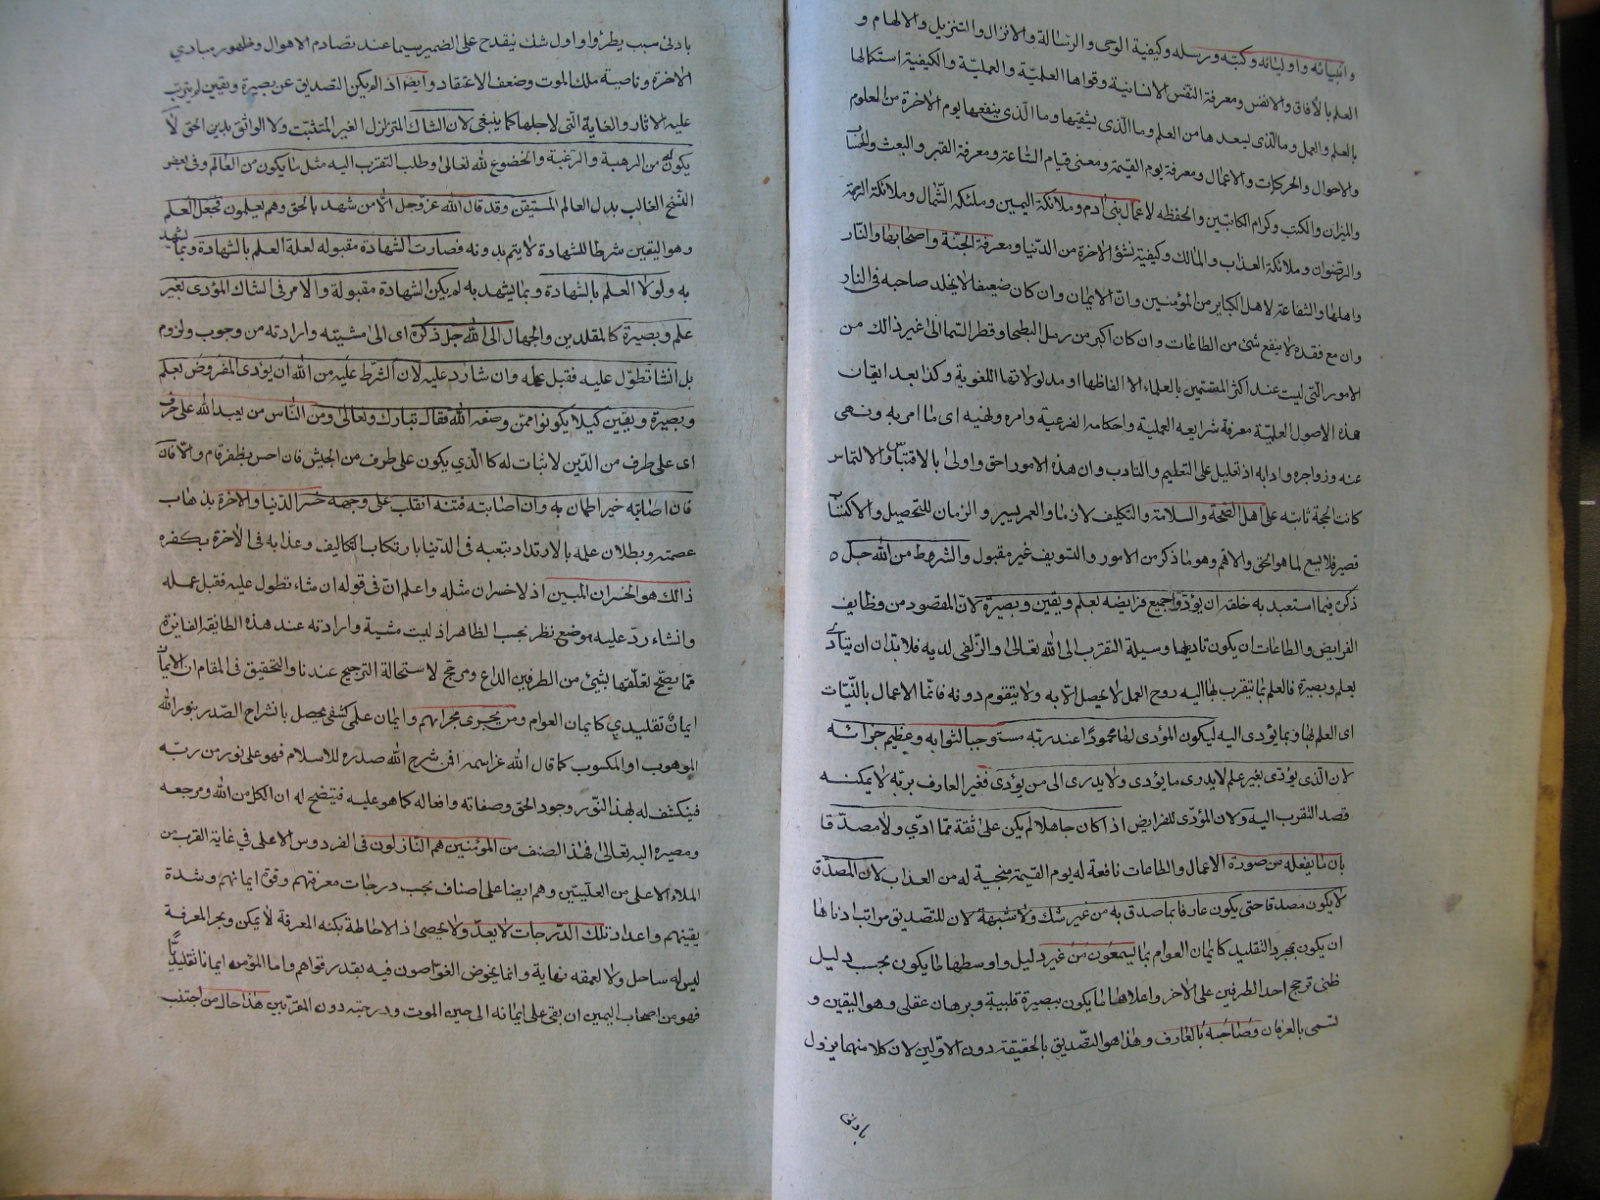 وانبيائه واوليائه وكتبه ورسله وكيفية الوحى والرسالة والانزال والتنزيل والالهام و
العلم بالآفاق والانفس ومعرفة النفس الانسانية وقواها العلمية والعملية والكيفية استكمالها
بالعلم والعمل وما الذى يسعدها من العلم وما الذى يشقيها وما الذى ينفعها يوم الآخرة من العلوم
والاحوال والحركات والاعمال ومعرفة يوم القيمة ومعنى قيام الساعة ومعرفة القبر والبعث والحساب
والميزان والكتب وكرام الكاتبين والحفظه لاعمال بنى ادم وملائكة اليمين وملئكة الشمال وملائكة الرحمة
والرضوان وملائكة العذاب والمالك وكيفية نشؤ الآخرة من الدنيا ومعرفة الجنة واصحابها والنار
واهلها والشفاعة لاهل الكباير من المؤمنين وان الايمان وان كان ضعيفا لا يخلد صاحبه فى النار
وان مع فقده لا ينفع شئ من الطاعات وان كان اكبر من رمل البطحا وقطر السما الى غير ذالك من
الامور التى ليست عند اكثر المتسمين بالعلماء الا الفاظها او مدلولاتها اللغوية وكذا بعد ايقان
هذه الاصول العلمية معرفة شرايعه العملية واحكامه الفرعية وامره ونهيه اى ما امر به ونهى
عنه وزواجره وادابه اذ تعليل على التعظيم والتادب وان هذه الامور احق واولى بالاقتباس والالتماس
كانت الحجة ثابته على اهل الصحة والسلامة والتكليف لازما والعمر يسير والزمان للتحصيل والاكتساب
قصير فلا يسع لما هو الحق والاهم وهو ما ذكر من الامور والتسويف غير مقبول والشروط من الله جل
ذكره فيما استعبد به خلقه ان يؤدوا جميع فرايضه بعلم ويقين وبصيرة لان المقصود من وظايف
الفرايض والطاعات ان يكون تاديتها وسيلة التقرب الى الله تعالى والزلفى لديه فلا بد ان يتادى
بعلم وبصيرة فالعلم بما يتقرب بها اليه روح العمل لا يحصل الا به ولا يتقوم دونه فانما الاعمال بالنيات
اى العلم بها وبما يؤدى اليه ليكون المؤدى لها محمودا عند ربه مستوجبا لثوابه وعظيم جزائه
لان الذى يؤدى بغير علم لا يدرى ما يؤدى ولا يدرى الى من يؤدى فغير العارف بربه لا يمكنه
قصد التقرب اليه ولان المؤدى للفرايض اذا كان جاهلا لم يكن على ثقة مما ادى ولا مصدقا
بان ما يفعله من صورة الاعمال والطاعات نافعة له يوم القيمة منجية له من العذاب لان المصدق
لا يكون مصدقا حتى يكون عارفا بما صدق به من غير شك ولا شبهة لان للتصديق مراتب ادناها
ان يكون بمجرد التقليد كايمان العوام بما يسمعون من غير دليل واوسطها ما يكون بحسب دليل
ظنى ترجح احد الطرفين على الآخر واعلاها ما يكون ببصيرة قلبية وبرهان عقلى وهو اليقين و
تسمى بالعرفان وصاحبه بالعارف وهذا هو التصديق بالحقيقة دون الاولين لان كلا منهما يزول
بادنى
بادنى سبب يطرؤ او اول شك ينقدح على الضمير سيما عند تصادم الاهوال وظهور مبادى
الآخرة وناصية ملك الموت وضعف الاعتقاد وايضا اذا لم يكن التصديق عن بصيرة ويقين لم يترتب
عليه الاثار والغاية التى لاجلها كما ينبغى لان الشاك المتزلزل الغير المتثبت ولا الواثق بدين الحق لا
يكون له من الرهبة والرغبة والخضوع لله تعالى وطلب التقرب اليه مثل ما يكون من العالم وفى بعض
النسخ الغالب بدل العالم المستيقن وقد قال الله عز وجل الا من شهد بالحق وهم يعلمون فجعل العلم
وهو اليقين شرطا للشهادة لا يتم بدونه فصارت الشهادة مقبوله لعلة العلم بالشهادة وبما يشهد
به ولولا العلم بالشهادة وبما يشهد به لم يكن الشهادة مقبولة والامر فى الشاك المؤدى بغير
علم وبصيرة كالمقلدين والجهال الى الله جل ذكره اى الى مشيته وارادته من وجوب ولزوم
بل انشا تطول عليه فقبل عمله وان شا رد عليه لان الشرط عليه من الله ان يؤدى المفروض بعلم
وبصيرة ويقين كيلا يكونوا ممن وصفه الله فقال تبارك وتعالى ومن الناس من يعبد الله على حرف
اى على طرف من الدين لا ثبات له كالذى يكون على طرف من الجيش فان احس بظفر قام والا فان
فان اصابه خير اطمان به وان اصابته فتنة انقلب على وجهه خسر الدنيا والآخرة بذهاب
عصمته وبطلان عمله بالارتداد بتعبه فى الدنيا بارتكاب التكاليف وعذابه فى الآخرة بكفره
ذالك هو الخسران المبين اذ لا خسران مثله واعلم ان فى قوله ان شاء تطول عليه فقبل عمله
وانشاء رد عليه موضع نظر بحسب الظاهر اذ ليست مشية وارادته عند هذه الطايفة الفايزة
مما يصح تعلقها بشئ من الطرفين الداع ومرجح لاستحالة الترجيح عندنا والتحقيق فى المقام ان الايمان
ايمان تقليدى كايمان العوام ومن يجرى مجراهم وايمان علمى كشفى يحصل بانشراح الصدر بنور الله
الموهوب او المكسوب كما قال الله عز اسمه افمن شرح الله صدره للاسلام فهو على نور من ربه
فينكشف له بهذا النور وجود الحق وصفاته وافعاله كما هو عليه فيتضح له ان الكل من الله ومرجعه
ومصيره اليه تعالى فهذا الصنف من المؤمنين هم النازلون فى الفردوس الاعلى فى غاية القرب من
الملاء الاعلى من العليين وهم ايضا على اصناف بحسب درجات معرفتهم وقوة ايمانهم وشدة
يقينهم واعداد تلك الدرجات لا يعد ولا يحصى اذ الاحاطة بكنه المعرفة لا يمكن وبحر المعرفة
ليس له ساحل ولا لعمقه نهاية وانما يخوض الغواصون فيه بقدر قواهم واما المؤمن ايمانا تقليديا
فهو من اصحاب اليمين ان بقى على ايمانه الى حين الموت ودرجته دون المقربين هذا حال من اجتنب